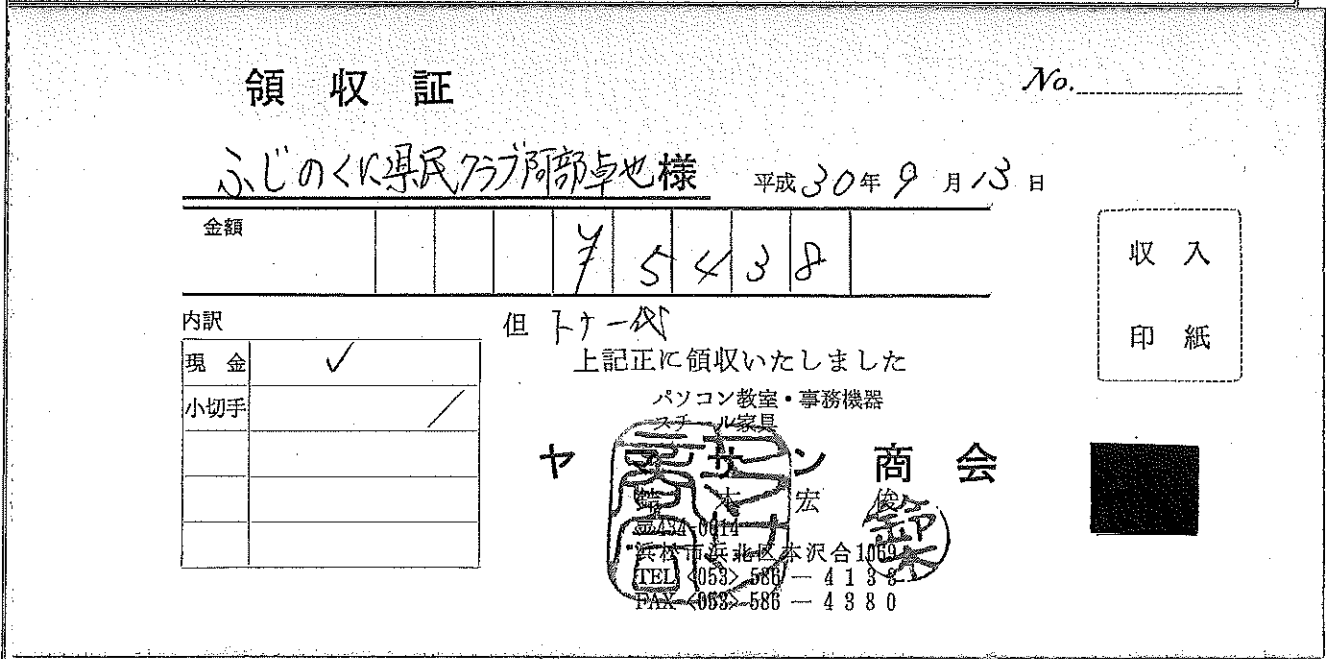 領収証
No.
ふじのくに県民クラブ阿部卓也様 平成30年9月13日
金額 ¥5438
内訳
但 トナー代
現金 ✓
上記正に領収いたしました
小切手
パソコン教室・事務機器
スチール家具
ヤマサン商会
鈴木宏俊
〒434-0014
浜松市浜北区本沢合1069
TEL <053> 586 ― 4138
FAX <053> 586 ― 4380
収入
印紙
鈴木